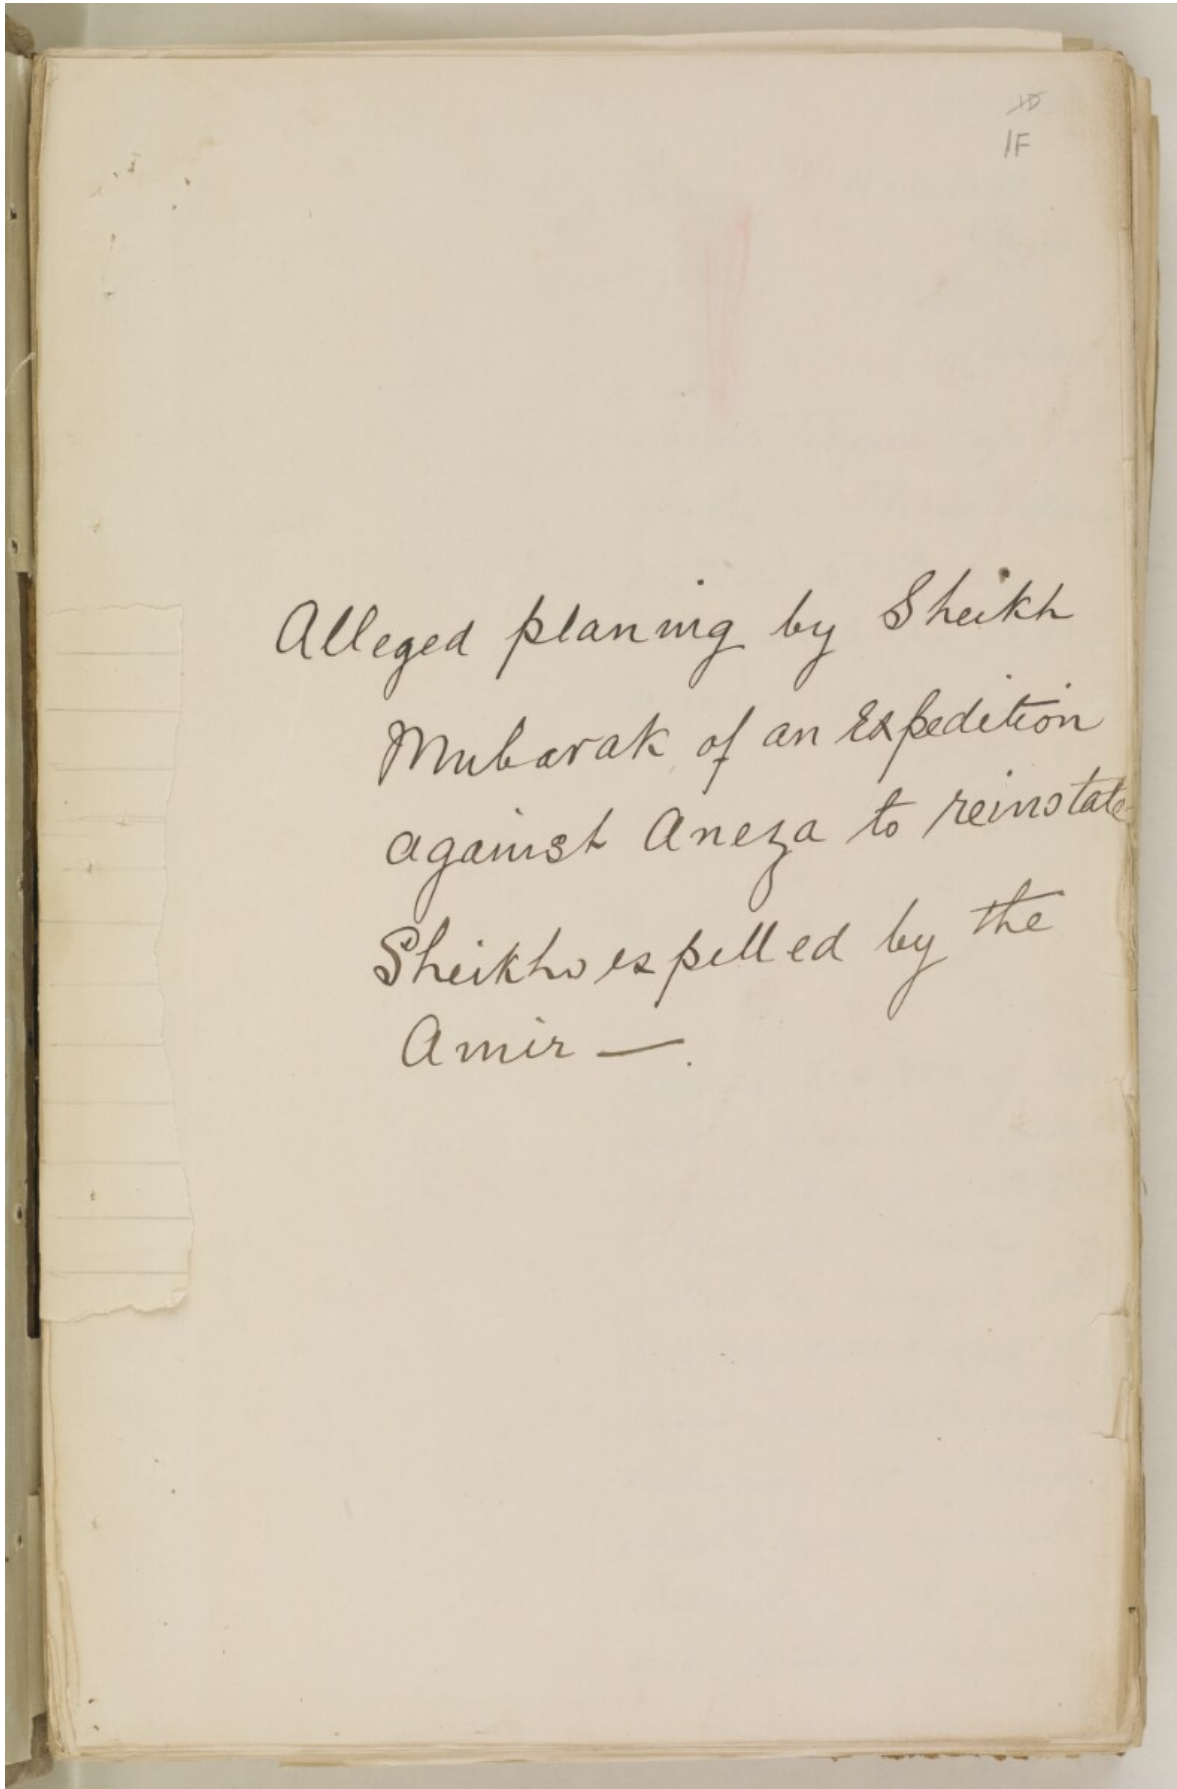 1F
Alleged planing by Sheikh
Mubarak of an Expedition
against Aneza to reinstate
Sheikhs expelled by the
Amir —.